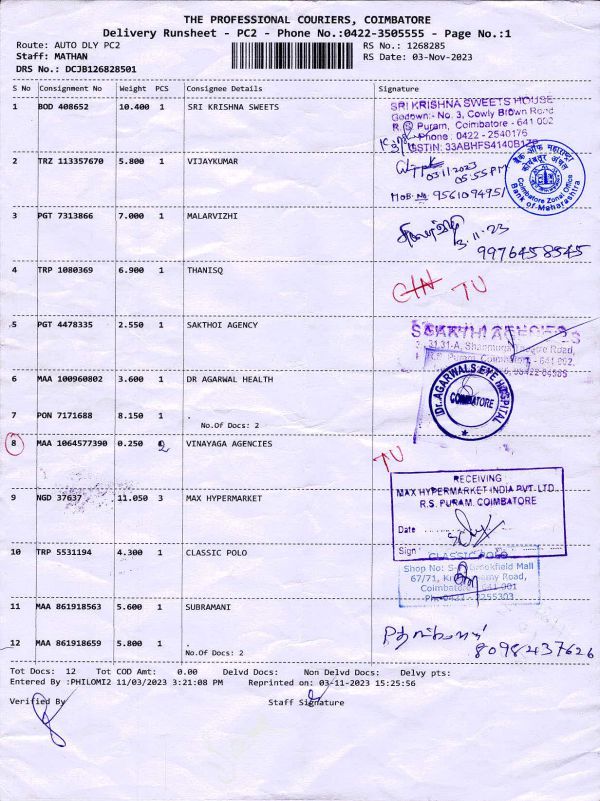 THE PROFESSIONAL COURIERS, COIMBATORE
Delivery Runsheet - PC2 - Phone No.:0422-3505555 - Page No.:1
Route: AUTO DLY PC2 RS No.: 1268285
Staff: MATHAN RS Date: 03-Nov-2023
DRS No.: DCJB126828501
S No Consignment No Weight PCS Consignee Details Signature
1 BOD 408652 10.400 1 SRI KRISHNA SWEETS
SRI KRISHNA SWEETS HOUSE
Godown:- No. 3, Cowly Brown Road
R.S Puram, Coimbatore - 641 002
Phone : 0422 - 2540176
GSTIN: 33ABHFS4140B1ZP
2 TRZ 113357670 5.800 1 VIJAYKUMAR
03/11/2023
05:55PM
MOB.No. 9561094951
बैंक ऑफ महाराष्ट्र
Coimbatore Zonal Office
Bank of Maharashtra
3 PGT 7313866 7.000 1 MALARVIZHI
3.11.23
9976458545
4 TRP 1080369 6.900 1 THANISQ
TU
5 PGT 4478335 2.550 1 SAKTHOI AGENCY
SAKTHI AGENCIES
R.S. Puram, Coimbatore - 641 002.
6 MAA 100960802 3.600 1 DR AGARWAL HEALTH
Dr.AGARWALS EYE HOSPITAL
COIMBATORE
7 PON 7171688 8.150 1
No.Of Docs: 2
8 MAA 1064577390 0.250 2 VINAYAGA AGENCIES
TU
9 NGD 37637 11.050 3 MAX HYPERMARKET
RECEIVING
MAX HYPERMARKET INDIA PVT. LTD.
R.S. PURAM, COIMBATORE
Date
Sign
10 TRP 5531194 4.300 1 CLASSIC POLO
CLASSIC POLO
Shop No: Brookfield Mall
67/71, Road,
Coimbatore 641 001
Ph: 0422 - 2255303
11 MAA 861918563 5.600 1 SUBRAMANI
12 MAA 861918659 5.800 1
No.Of Docs: 2
8098437626
Tot Docs: 12 Tot COD Amt: 0.00 Delvd Docs: Non Delvd Docs: Delvy pts:
Entered By :PHILOMI2 11/03/2023 3:21:08 PM Reprinted on: 03-11-2023 15:25:56
Verified By Staff Signature